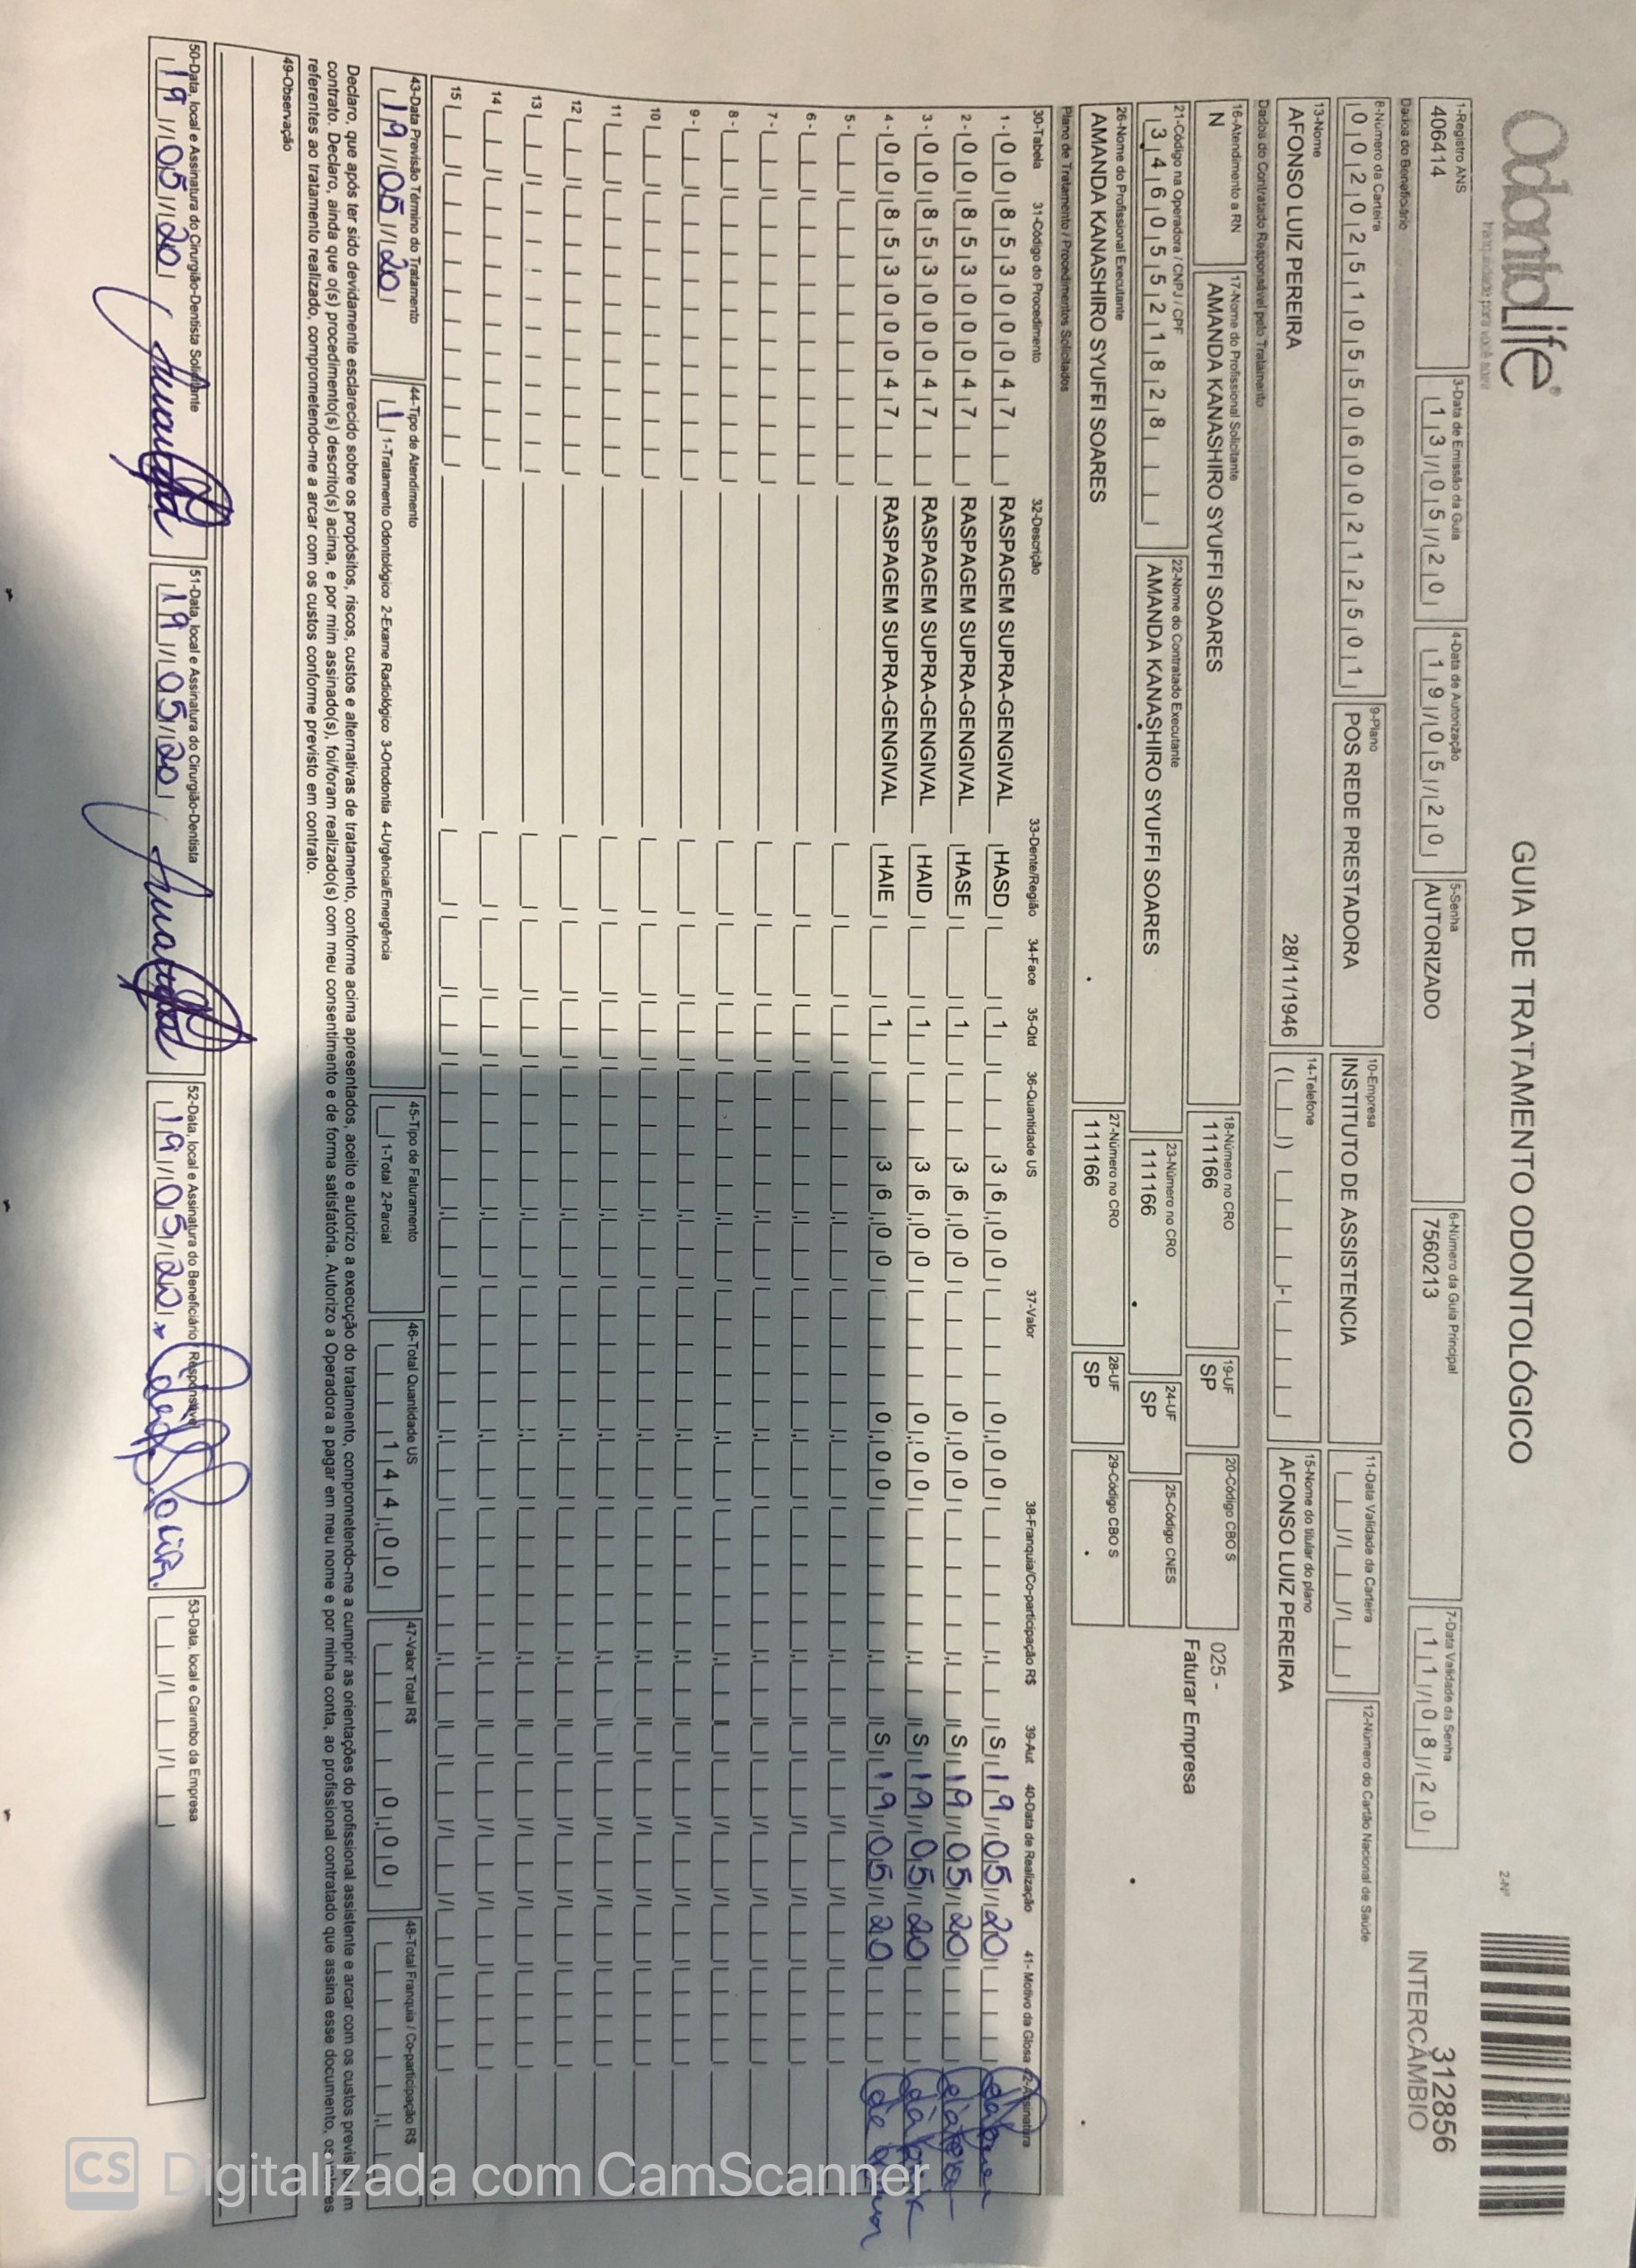 OdontoLife®
GUIA DE TRATAMENTO ODONTOLÓGICO
2-Nº
312856
INTERCÂMBIO
1-Registro ANS
406414
3-Data de Emissão da Guia
13/05/20
4-Data de Autorização
19/05/20
5-Senha
AUTORIZADO
6-Número da Guia Principal
7560213
7-Data Validade da Senha
11/08/20
Dados do Beneficiário
8-Número da Carteira
00202510550600212501
9-Plano
POS REDE PRESTADORA
10-Empresa
INSTITUTO DE ASSISTENCIA
11-Data Validade da Carteira
12-Número do Cartão Nacional de Saúde
13-Nome
AFONSO LUIZ PEREIRA 28/11/1946
14-Telefone
15-Nome do titular do plano
AFONSO LUIZ PEREIRA
Dados do Contratado Responsável pelo Tratamento
16-Atendimento a RN
N
17-Nome do Profissional Solicitante
AMANDA KANASHIRO SYUFFI SOARES
18-Número no CRO
111166
19-UF
SP
20-Código CBO S
025 -
Faturar Empresa
21-Código na Operadora / CNPJ / CPF
34605521828
22-Nome do Contratado Executante
AMANDA KANASHIRO SYUFFI SOARES
23-Número no CRO
111166
24-UF
SP
25-Código CNES
26-Nome do Profissional Executante
AMANDA KANASHIRO SYUFFI SOARES
27-Número no CRO
111166
28-UF
SP
29-Código CBO S
Plano de Tratamento / Procedimentos Solicitados
30-Tabela 31-Código do Procedimento 32-Descrição 33-Dente/Região 34-Face 35-Qtd 36-Quantidade US 37-Valor 38-Franquia/Co-participação R$ 39-Aut 40-Data de Realização 41- Motivo da Glosa 42-Assinatura
1- 00 85300047 RASPAGEM SUPRA-GENGIVAL HASD 1 36,00 0,00 S 19/05/20
2- 00 85300047 RASPAGEM SUPRA-GENGIVAL HASE 1 36,00 0,00 S 19/05/20
3- 00 85300047 RASPAGEM SUPRA-GENGIVAL HAID 1 36,00 0,00 S 19/05/20
4- 00 85300047 RASPAGEM SUPRA-GENGIVAL HAIE 1 36,00 0,00 S 19/05/20
5-
6-
7-
8-
9-
10
11
12
13
14
15
43-Data Previsão Término do Tratamento
19/05/20
44-Tipo de Atendimento
1 1-Tratamento Odontológico 2-Exame Radiológico 3-Ortodontia 4-Urgência/Emergência
45-Tipo de Faturamento
1-Total 2-Parcial
46-Total Quantidade US
144,00
47-Valor Total R$
0,00
48-Total Franquia / Co-participação R$
Declaro, que após ter sido devidamente esclarecido sobre os propósitos, riscos, custos e alternativas de tratamento, conforme acima apresentados, aceito e autorizo a execução do tratamento, comprometendo-me a cumprir as orientações do profissional assistente e arcar com os custos previstos em
contrato. Declaro, ainda que o(s) procedimento(s) descrito(s) acima, e por mim assinado(s), foi/foram realizado(s) com meu consentimento e de forma satisfatória. Autorizo a Operadora a pagar em meu nome e por minha conta, ao profissional contratado que assina esse documento, os valores
referentes ao tratamento realizado, comprometendo-me a arcar com os custos conforme previsto em contrato.
49-Observação
50-Data, local e Assinatura do Cirurgião-Dentista Solicitante
19/05/20
51-Data, local e Assinatura do Cirurgião-Dentista
19/05/20
52-Data, local e Assinatura do Beneficiário / Responsável
19/05/20
53-Data, local e Carimbo da Empresa
CS Digitalizada com CamScanner